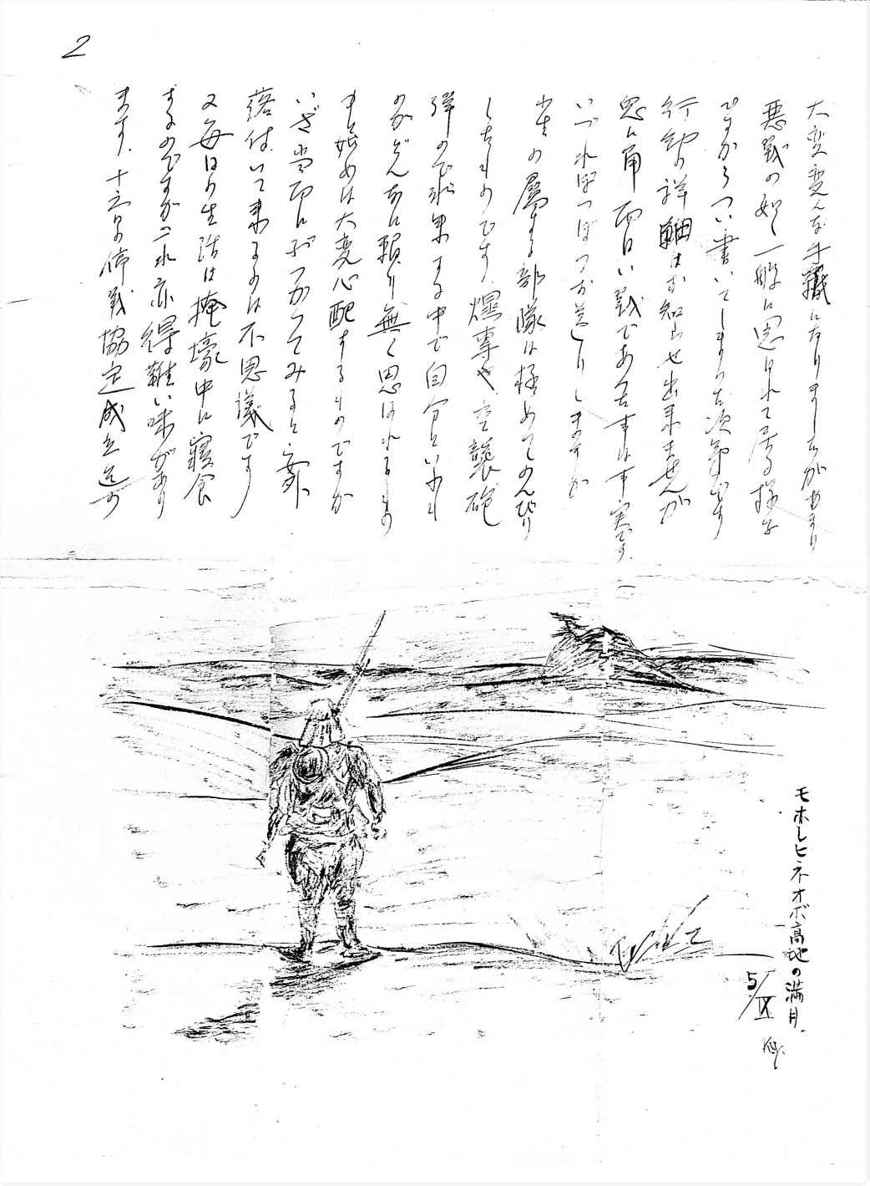 2
大変変な手職になりましたがあまり
悪戦の如く一般に思はれて居る様な
ですからつい書いてしまった次第です
行動の詳細はお知らせ出来ませんが
兎に角面白い戦であった事は事実です。
いづれぽつぽつお送りしますが
小生の属する部隊は極めてのんびり
したものです。爆撃や空襲砲
弾の飛来する中で自分といふもの
のがどんなに頼り無く思はれるもの
すと始めは大変心配するものですが
いざ当面にぶつかってみると案外
落付いて来るのは不思議です
又毎日の生活は掩壕中に寝食
するのですがこれ亦得難い味があり
ます。十六日の停戦協定成立迄の
モホレヒネオボ高地の満月。
5/IX